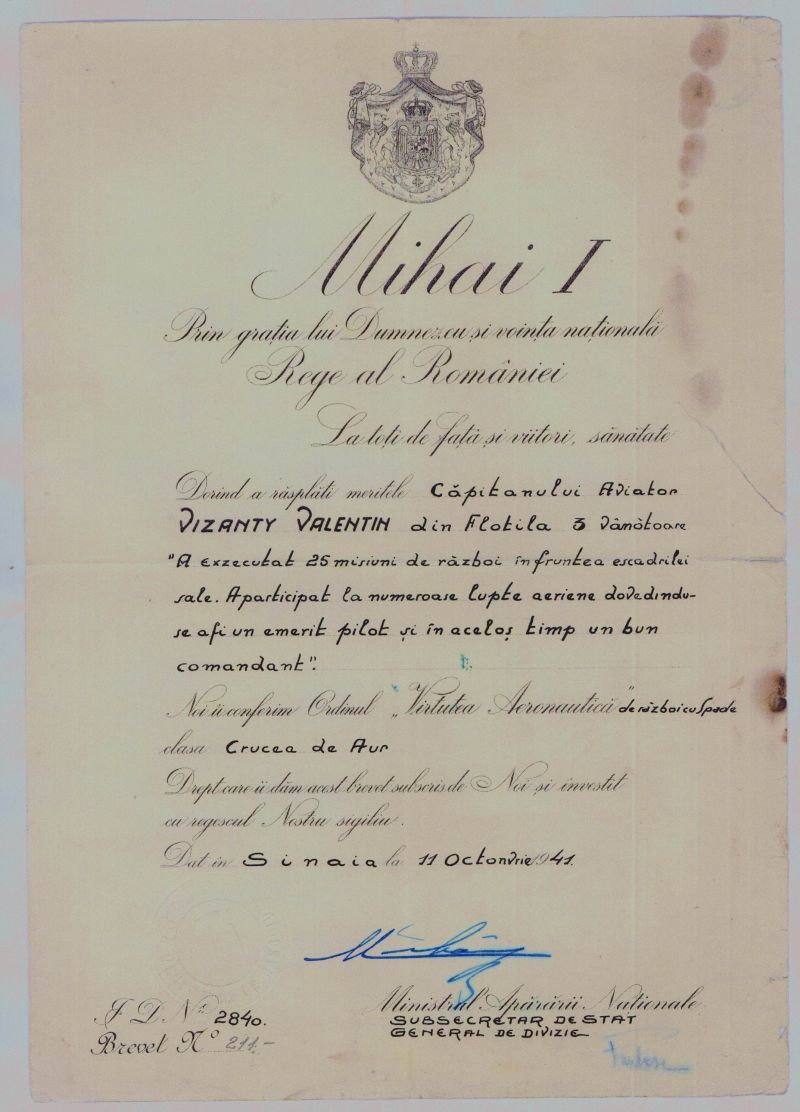 Mihai I
Prin grația lui Dumnezeu și voința națională
Rege al României
La toți de față și viitori, sănătate
Dorind a răsplăti meritele Căpitanului Aviator
VIZANTY VALENTIN din Flotila 3 Vânătoare
"A exzecutat 25 misiuni de război în fruntea escadrilei
sale. A participat la numeroase lupte aeriene dovedindu-
se afi un emerit pilot și în acelaș timp un bun
comandant".
Noi îi conferim Ordinul „Virtutea Aeronautică" de război cu Spade
clasa Crucea de Aur
Drept care îi dăm acest brevet subscris de Noi și investit
cu regescul Nostru sigiliu.
Dat în Sinaia la 11 Octomvrie 1941.
Ministrul Apărării Naționale
SUBSECRETAR DE STAT
GENERAL DE DIVIZIE
I. D. Nr. 2840.
Brevet No 211.-